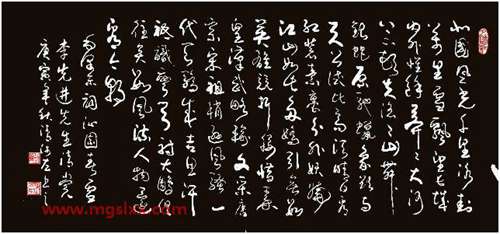 北國風光千里冰封
萬里雪飄望長城
内外惟餘莽莽大河
上下頓失滔滔山舞
銀蛇原馳蠟象欲與
天公試比高須晴日看
紅裝素裹分外妖嬈
江山如此多嬌引無數
英雄競折腰惜秦
皇漢武略輸文采唐
宗宋祖稍遜風騷一
代天驕成吉思汗
祇識彎弓射大鵰俱
往矣數風流人物還
看今朝
毛澤東詞沁園春雪
李先進先生清賞
庚寅年秋
www.mgslxs.com